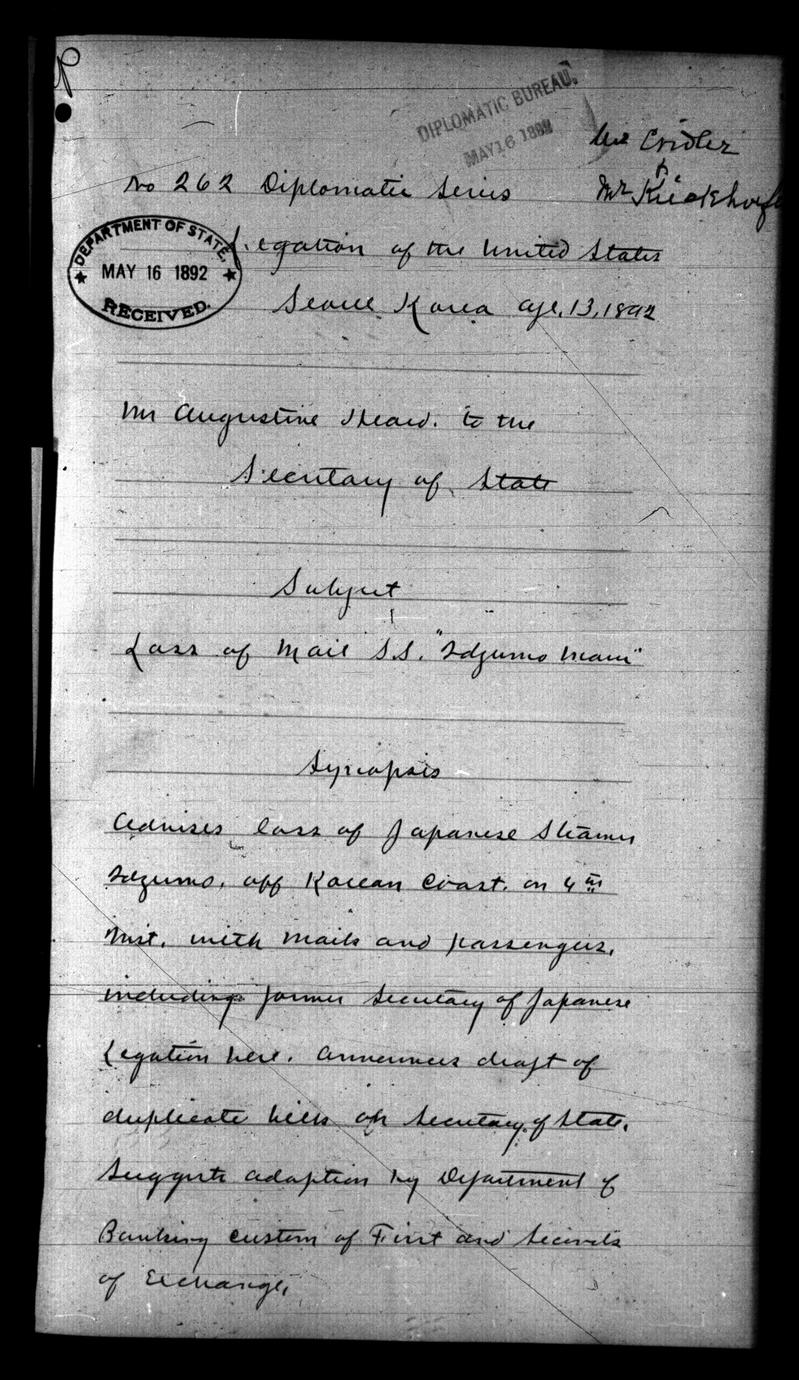 DIPLOMATIC BUREAU.
MAY 16 1892
Mr Cridler
Mr Kieckhoefer
No 262 Diplomatic Series
Legation of the United States
DEPARTMENT OF STATE.
MAY 16 1892
RECEIVED.
Seoul Korea Apl. 13, 1892
Mr Augustine Heard. to the
Secretary of State
Subject
Loss of Mail S.S. "Idzumo Maru"
Synopsis
Advises loss of Japanese Steamer
Idzumo, off Korean Coast, on 4th
Inst. with Mails and passengers,
including former Secretary of Japanese
Legation here. Announces draft of
duplicate bills on Secretary of State.
Suggests adoption by Department of
Banking custom of First and Seconds
of Exchange.